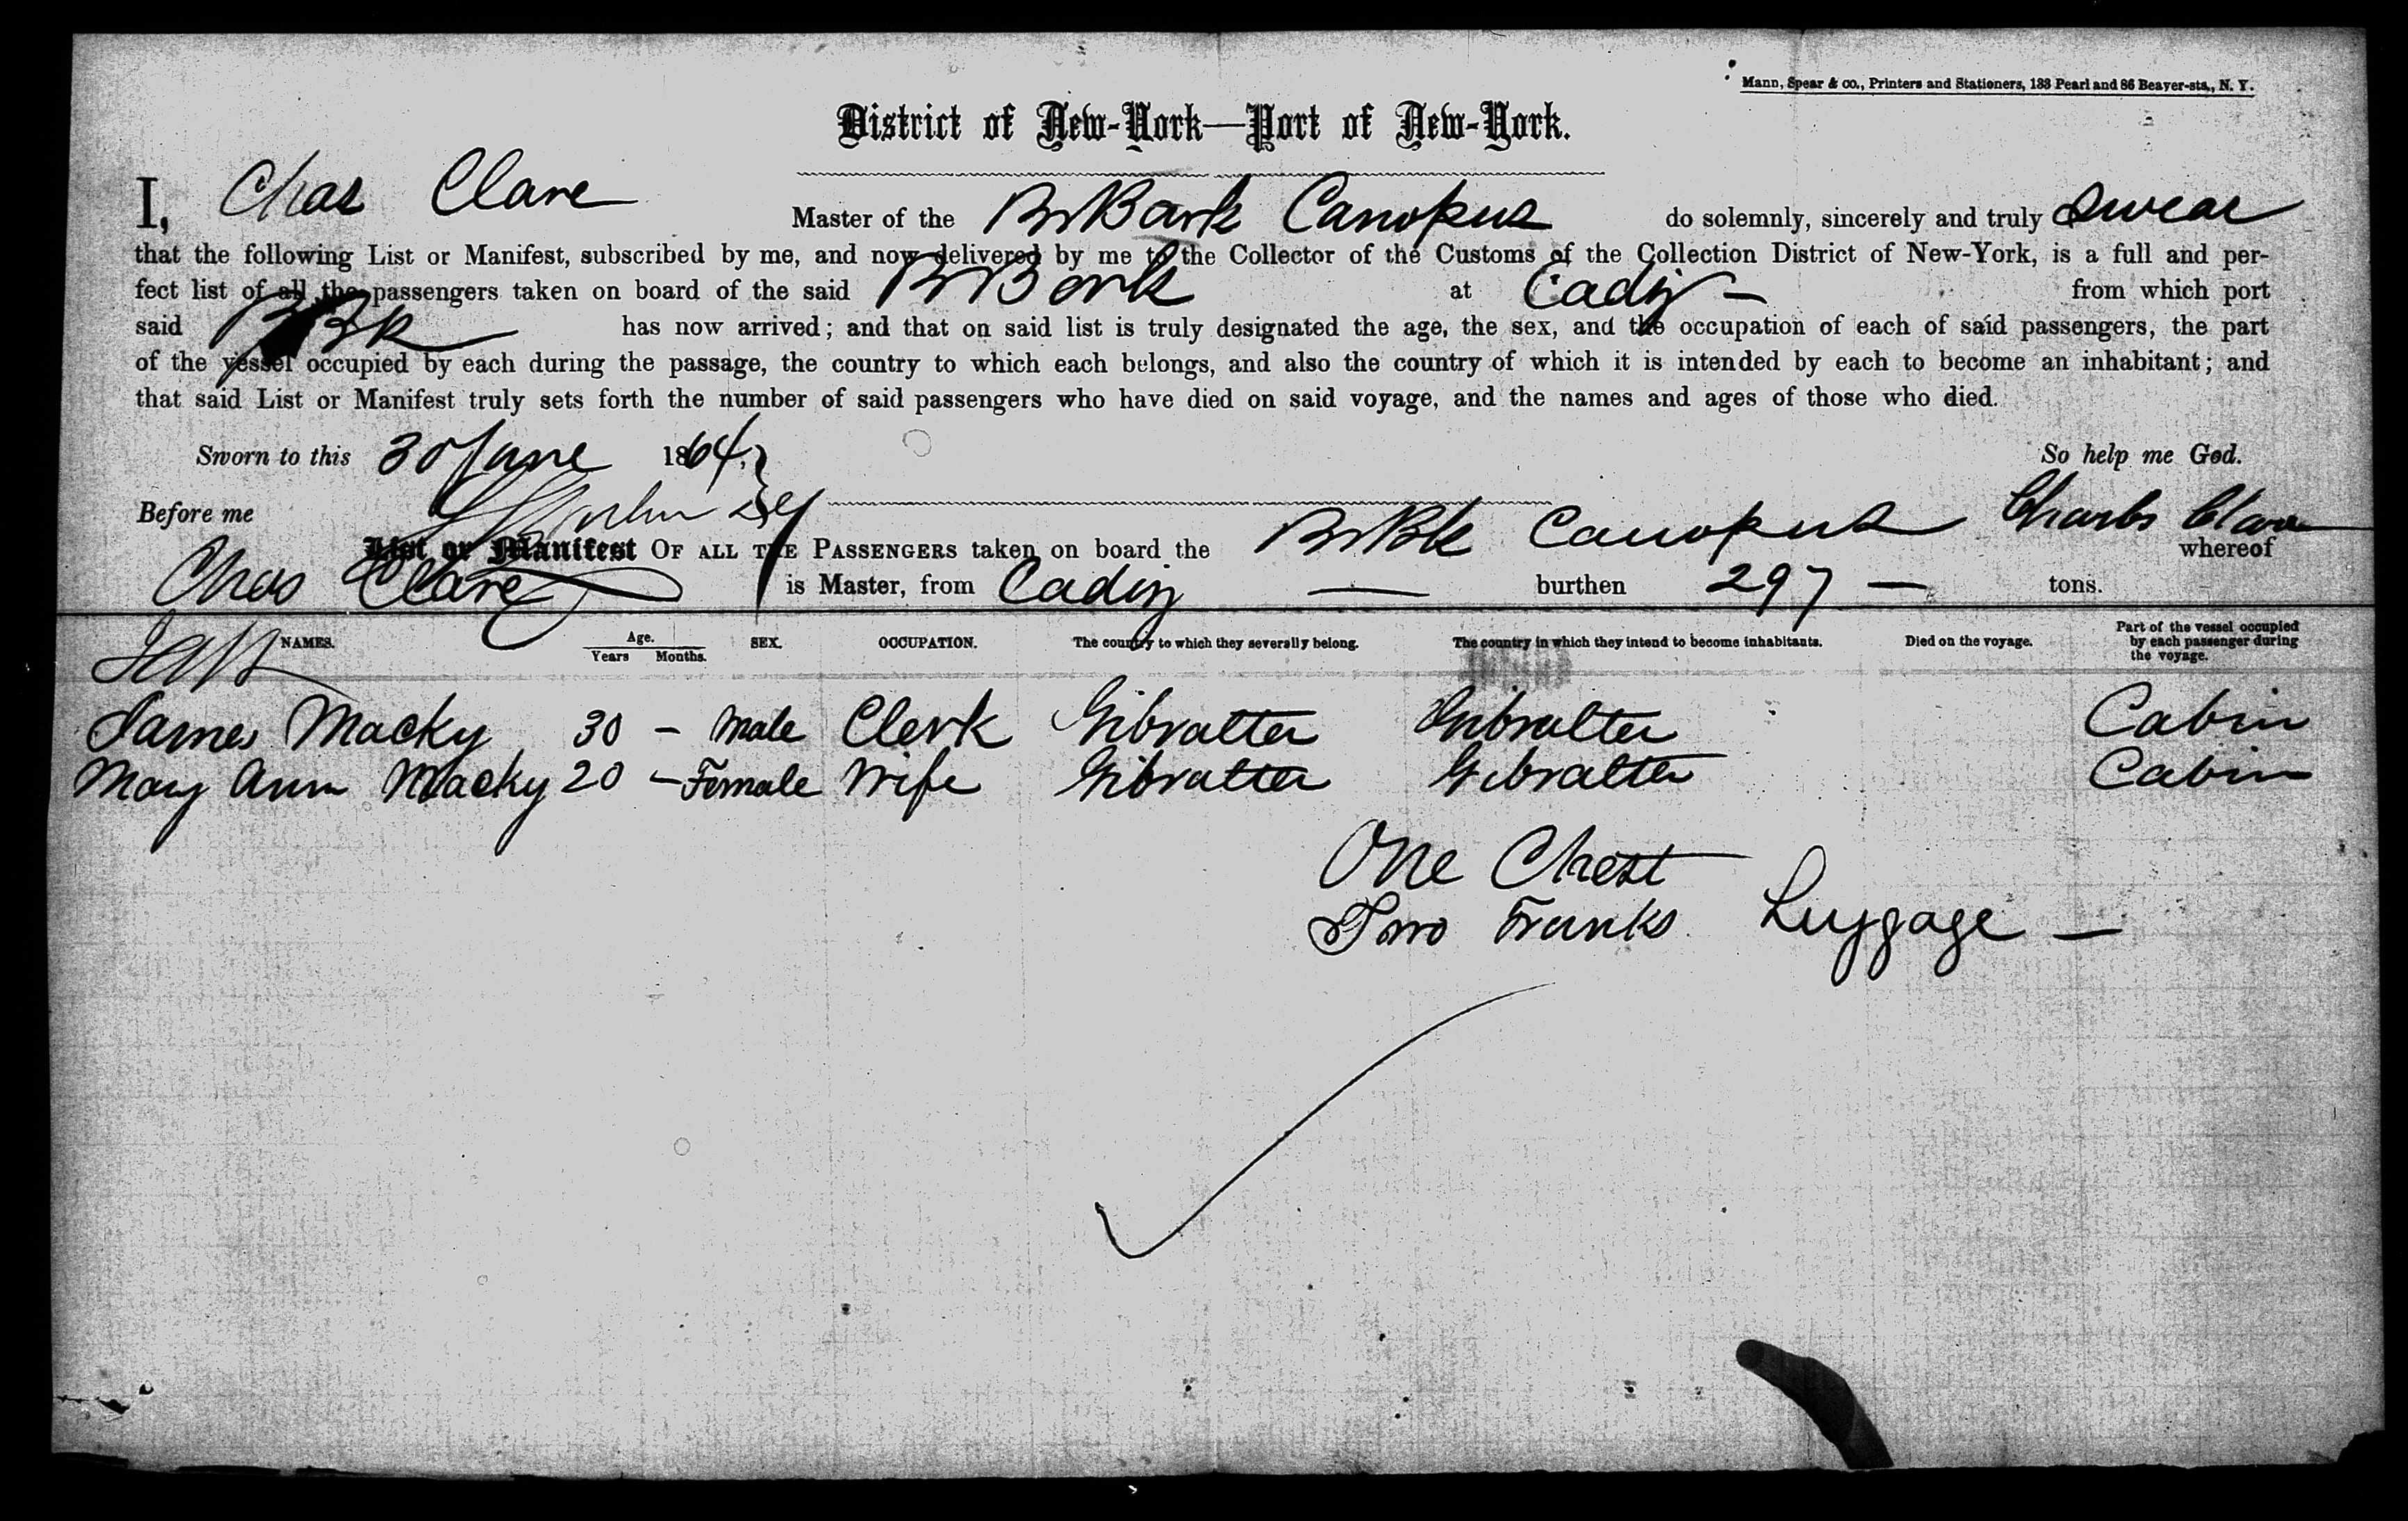 Mann, Spear & co., Printers and Stationers, 133 Pearl and 86 Beaver-sts., N. Y.
District of New-York—Port of New-York.
I, Chas Clare Master of the Br Bark Canopus do solemnly, sincerely and truly swear
that the following List or Manifest, subscribed by me, and now delivered by me to the Collector of the Customs of the Collection District of New-York, is a full and per-
fect list of all the passengers taken on board of the said Br Bark at Cadiz — from which port
said Br Bk has now arrived; and that on said list is truly designated the age, the sex, and the occupation of each of said passengers, the part
of the vessel occupied by each during the passage, the country to which each belongs, and also the country of which it is intended by each to become an inhabitant; and
that said List or Manifest truly sets forth the number of said passengers who have died on said voyage, and the names and ages of those who died.
Sworn to this 30 June 1864. So help me God.
Before me Charles Clare
List or Manifest OF ALL THE PASSENGERS taken on board the Br Bk Canopus whereof
Chas Clare is Master, from Cadiz — burthen 297 — tons.
NAMES. Age. Years Months. SEX. OCCUPATION. The country to which they severally belong. The country in which they intend to become inhabitants. Died on the voyage. Part of the vessel occupied by each passenger during the voyage.
James Macky 30 - Male Clerk Gibralter Gibralter Cabin
Mary Ann Macky 20 - Female Wife Gibralter Gibralter Cabin
One Chest
Two Trunks Luggage —